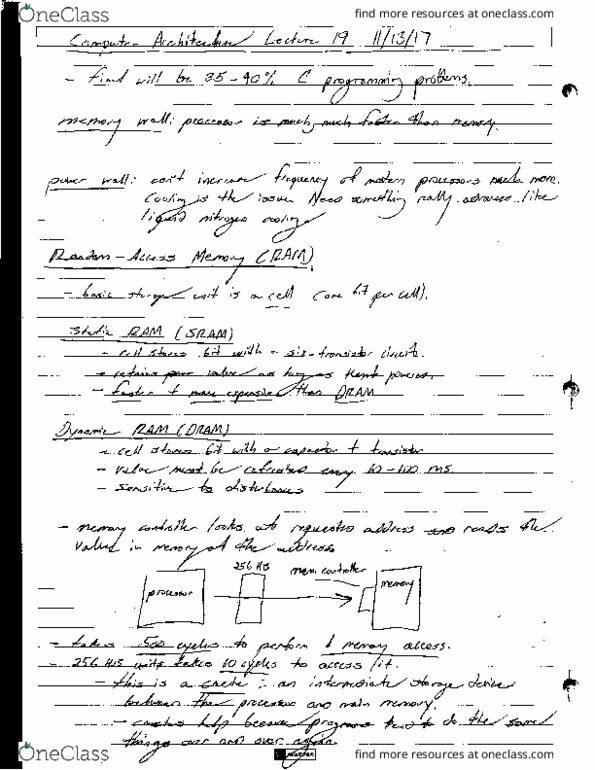 OneClass
find more resources at oneclass.com
Computer Architecture Lecture 19 11/13/17
- final will be 35-40% C programming problems.
memory wall: processor is much, much faster than memory.
power wall: can't increase frequency of modern processors much more.
Cooling is the issue. Need something really advanced like
liquid nitrogen cooling
Random-Access Memory (RAM)
- basic storage unit is a cell (one bit per cell).
Static RAM (SRAM)
- cell stores bit with a six-transistor circuit.
- retains value as long as
- faster + more expensive than DRAM
Dynamic RAM (DRAM)
- cell stores bit with a capacitor + transistor
- value must be refreshed every 10-100 ms.
- sensitive to disturbances
- memory controller looks at requested address and reads the
value in memory at the address
256
mem. controller
processor
memory
- takes 500 cycles to perform 1 memory access.
- 256 takes 10 cycles to access it.
- this is a cache: an intermediate storage device
between the processor and main memory.
- caches help because programs tend to do the same
things over and over again.
OneClass
find more resources at oneclass.com